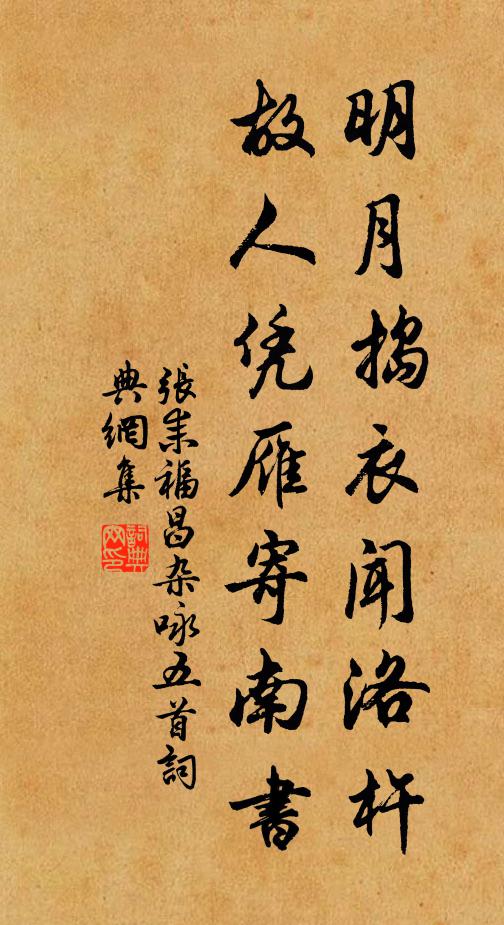 明月搗衣闻洛杵
故人凭雁寄南書
張耒福昌杂咏五首詞
典網集
詞典
网印